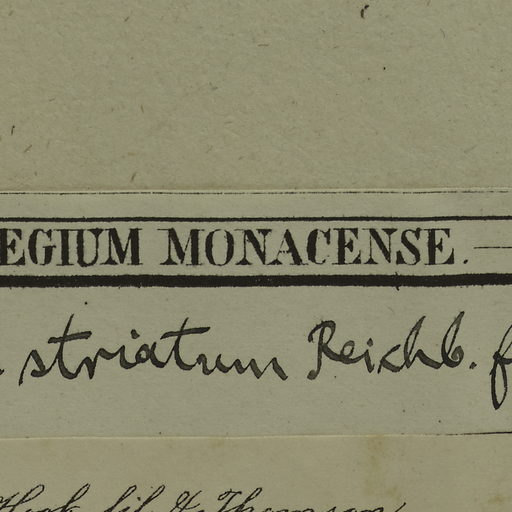 EGIUM MONACENSE.
striatum Reichb. f
Hook. fil. & Thomson